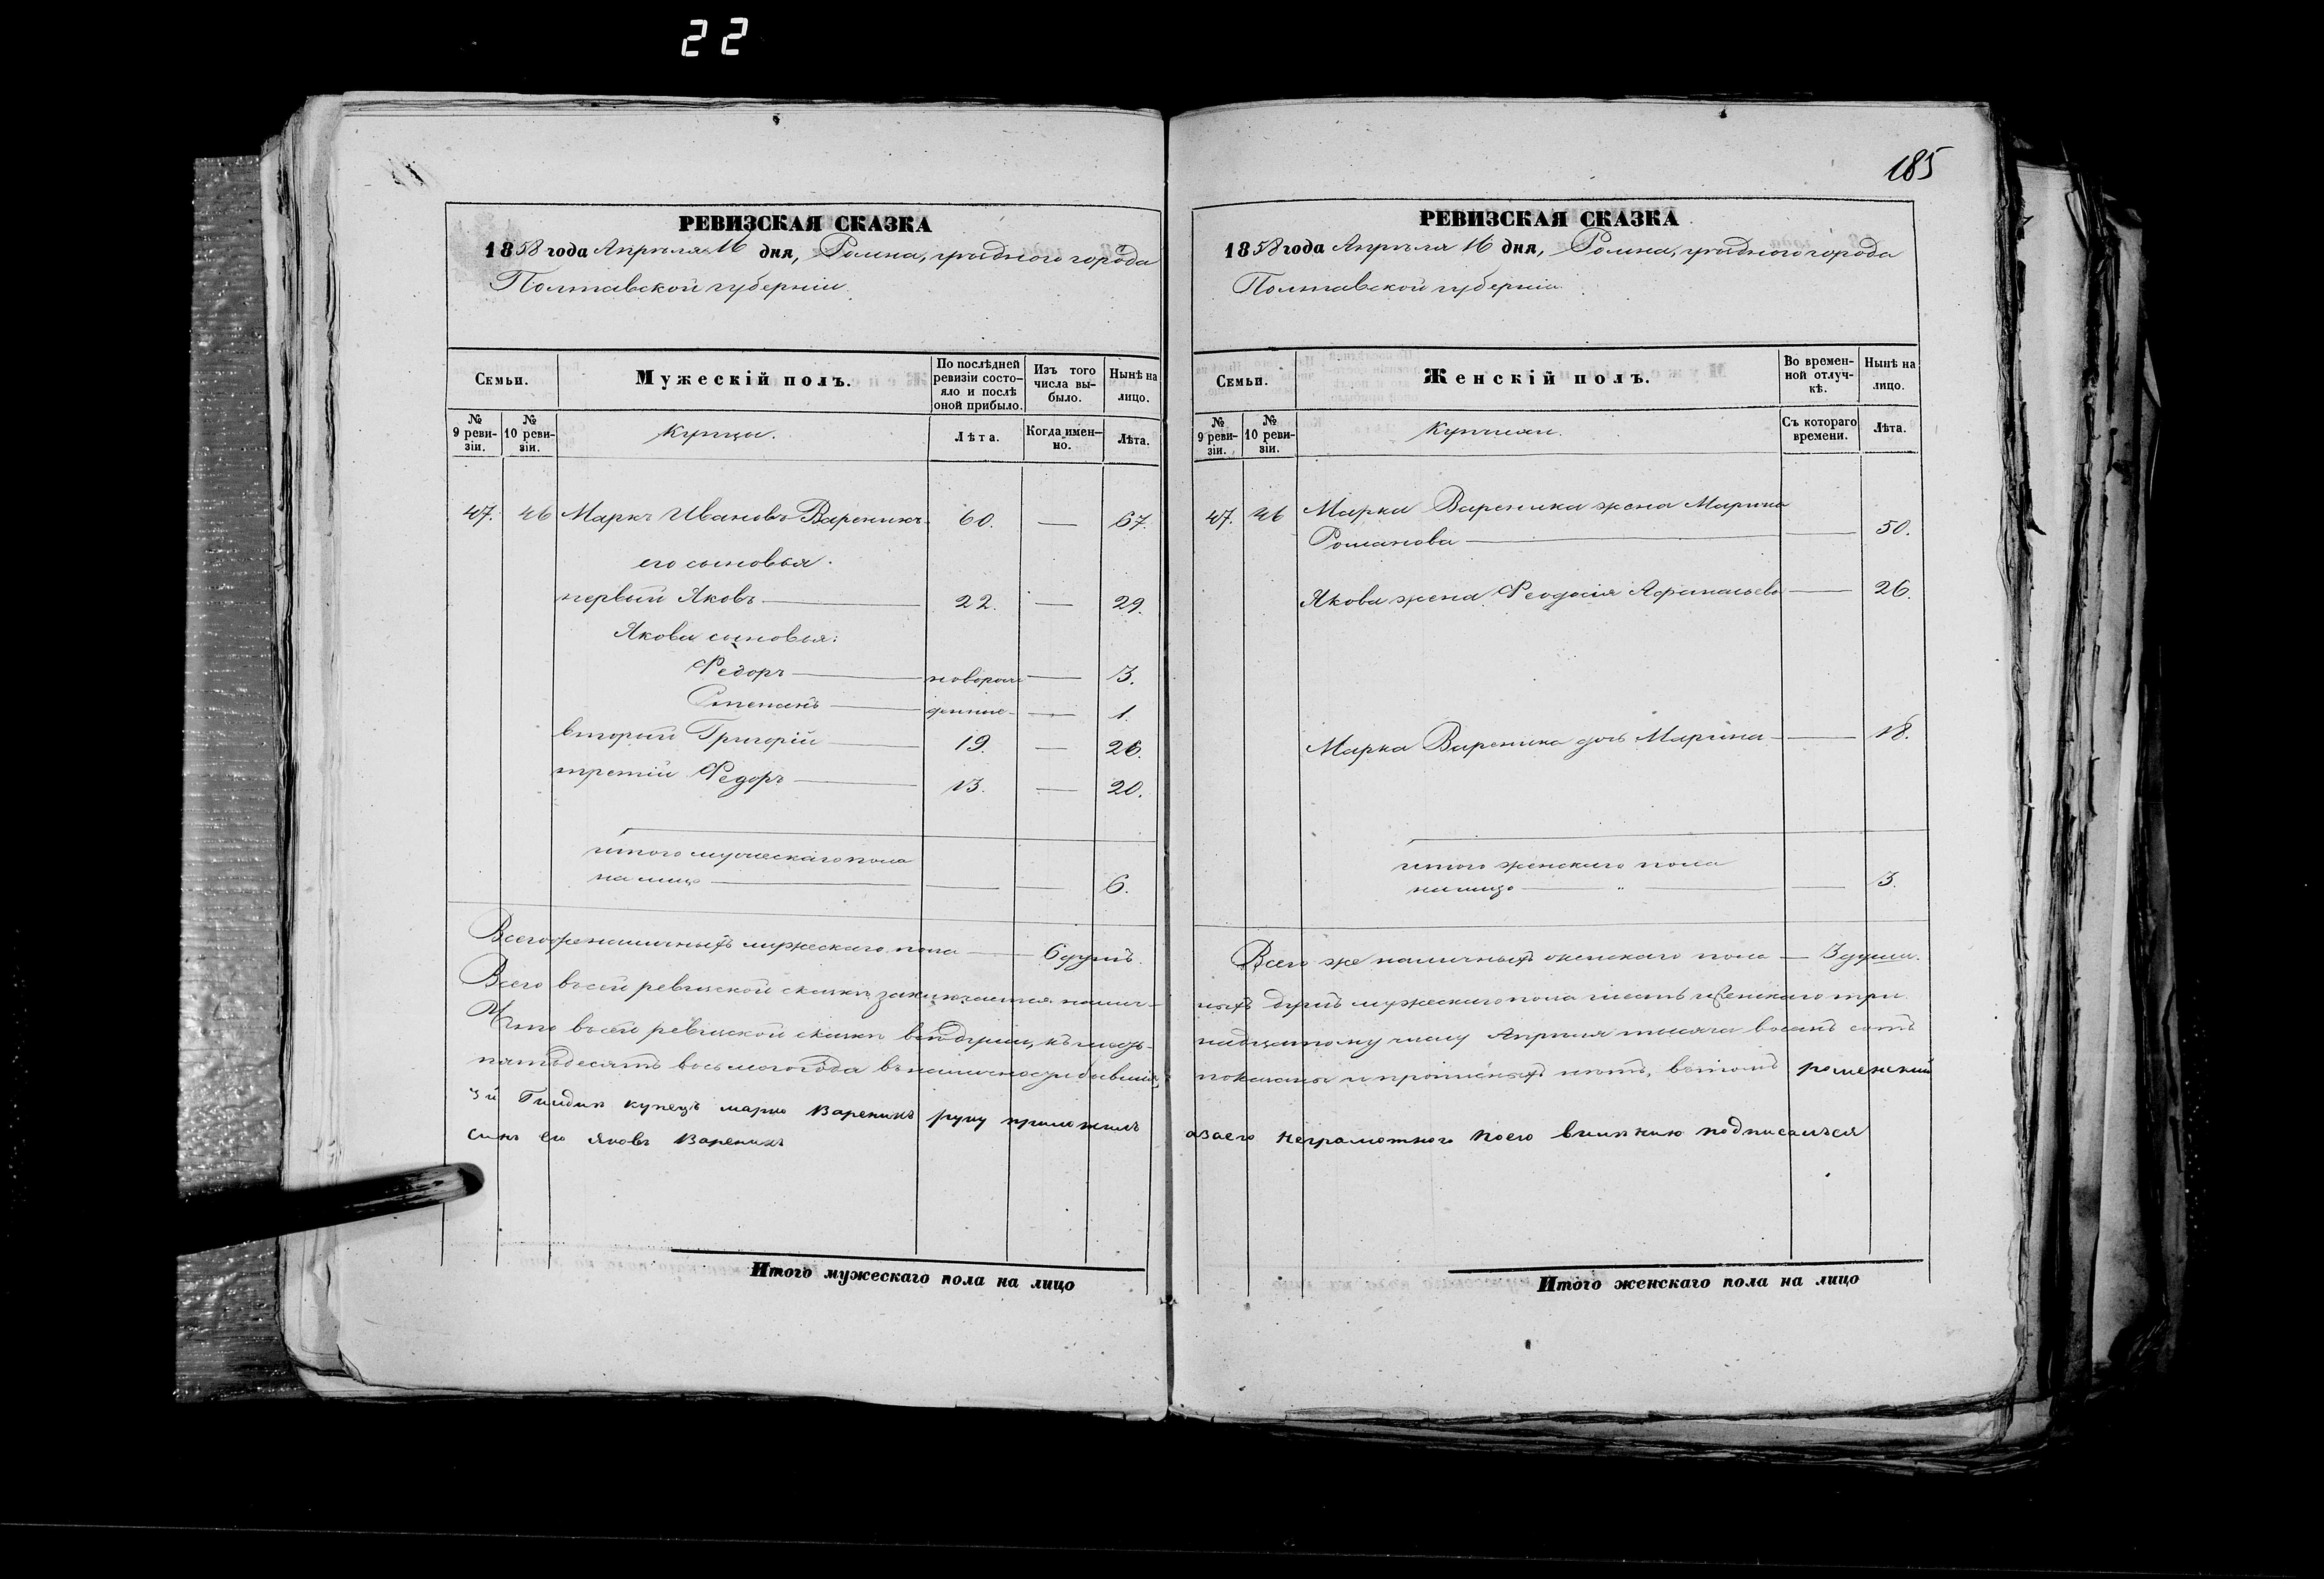 22
185
РЕВИЗСКАЯ СКАЗКА
1858 года Апрѣля 16 дня, Ромна, уѣзднаго города
Полтавской губерніи.
Семьи.
Мужескій полъ.
По послѣдней ревизіи состояло и послѣ оной прибыло.
Изъ того числа выбыло.
Нынѣ на лицо.
№ 9 ревизіи.
№ 10 ревизіи.
Купцы.
Лѣта.
Когда именно.
Лѣта.
47. 46 Маркъ Ивановъ Вареникъ 60. — 67.
его сыновья.
первый Яковъ — 22. — 29.
Якова сыновья:
Федоръ — новорож — 3.
Степанъ — денные — 1.
вторый Григорій — 19. — 26.
третій Федоръ — 13. — 20.
итого мужескаго пола
на лицо — — — 6.
Всего же наличныхъ мужескаго пола — 6 душъ.
Всего въ сей ревизской сказкѣ заключается налич-
Что въ сей ревизской сказкѣ всѣ души, къ шест-
пятьдесятъ восьмого года въ наличности бывшія,
3й Гильдіи купецъ марко Вареникъ руку приложилъ
синъ его Яковъ Вареникъ
Итого мужескаго пола на лицо
РЕВИЗСКАЯ СКАЗКА
1858 года Апрѣля 16 дня, Ромна, уѣзднаго города
Полтавской губерніи.
Семьи.
Женскій полъ.
Во временной отлучкѣ.
Нынѣ на лицо.
№ 9 ревизіи.
№ 10 ревизіи.
Съ котораго времени.
Лѣта.
47. 46 Марка Вареника жена Марина
Романова — — 50.
Якова жена Феодосія Афанасьева — 26.
Марка Вареника дочь Марина — — 18.
итого женскаго пола
на лицо — " — — 3.
Всего же наличныхъ женскаго пола — 3 души.
ныхъ душъ мужескаго пола шесть и женскаго три
надцатому числу Апрѣля тысяча восемь сотъ
показаны и прописныхъ нѣтъ, въ томъ роменский
азаего неграмотного поего велѣнию подписался
Итого женскаго пола на лицо